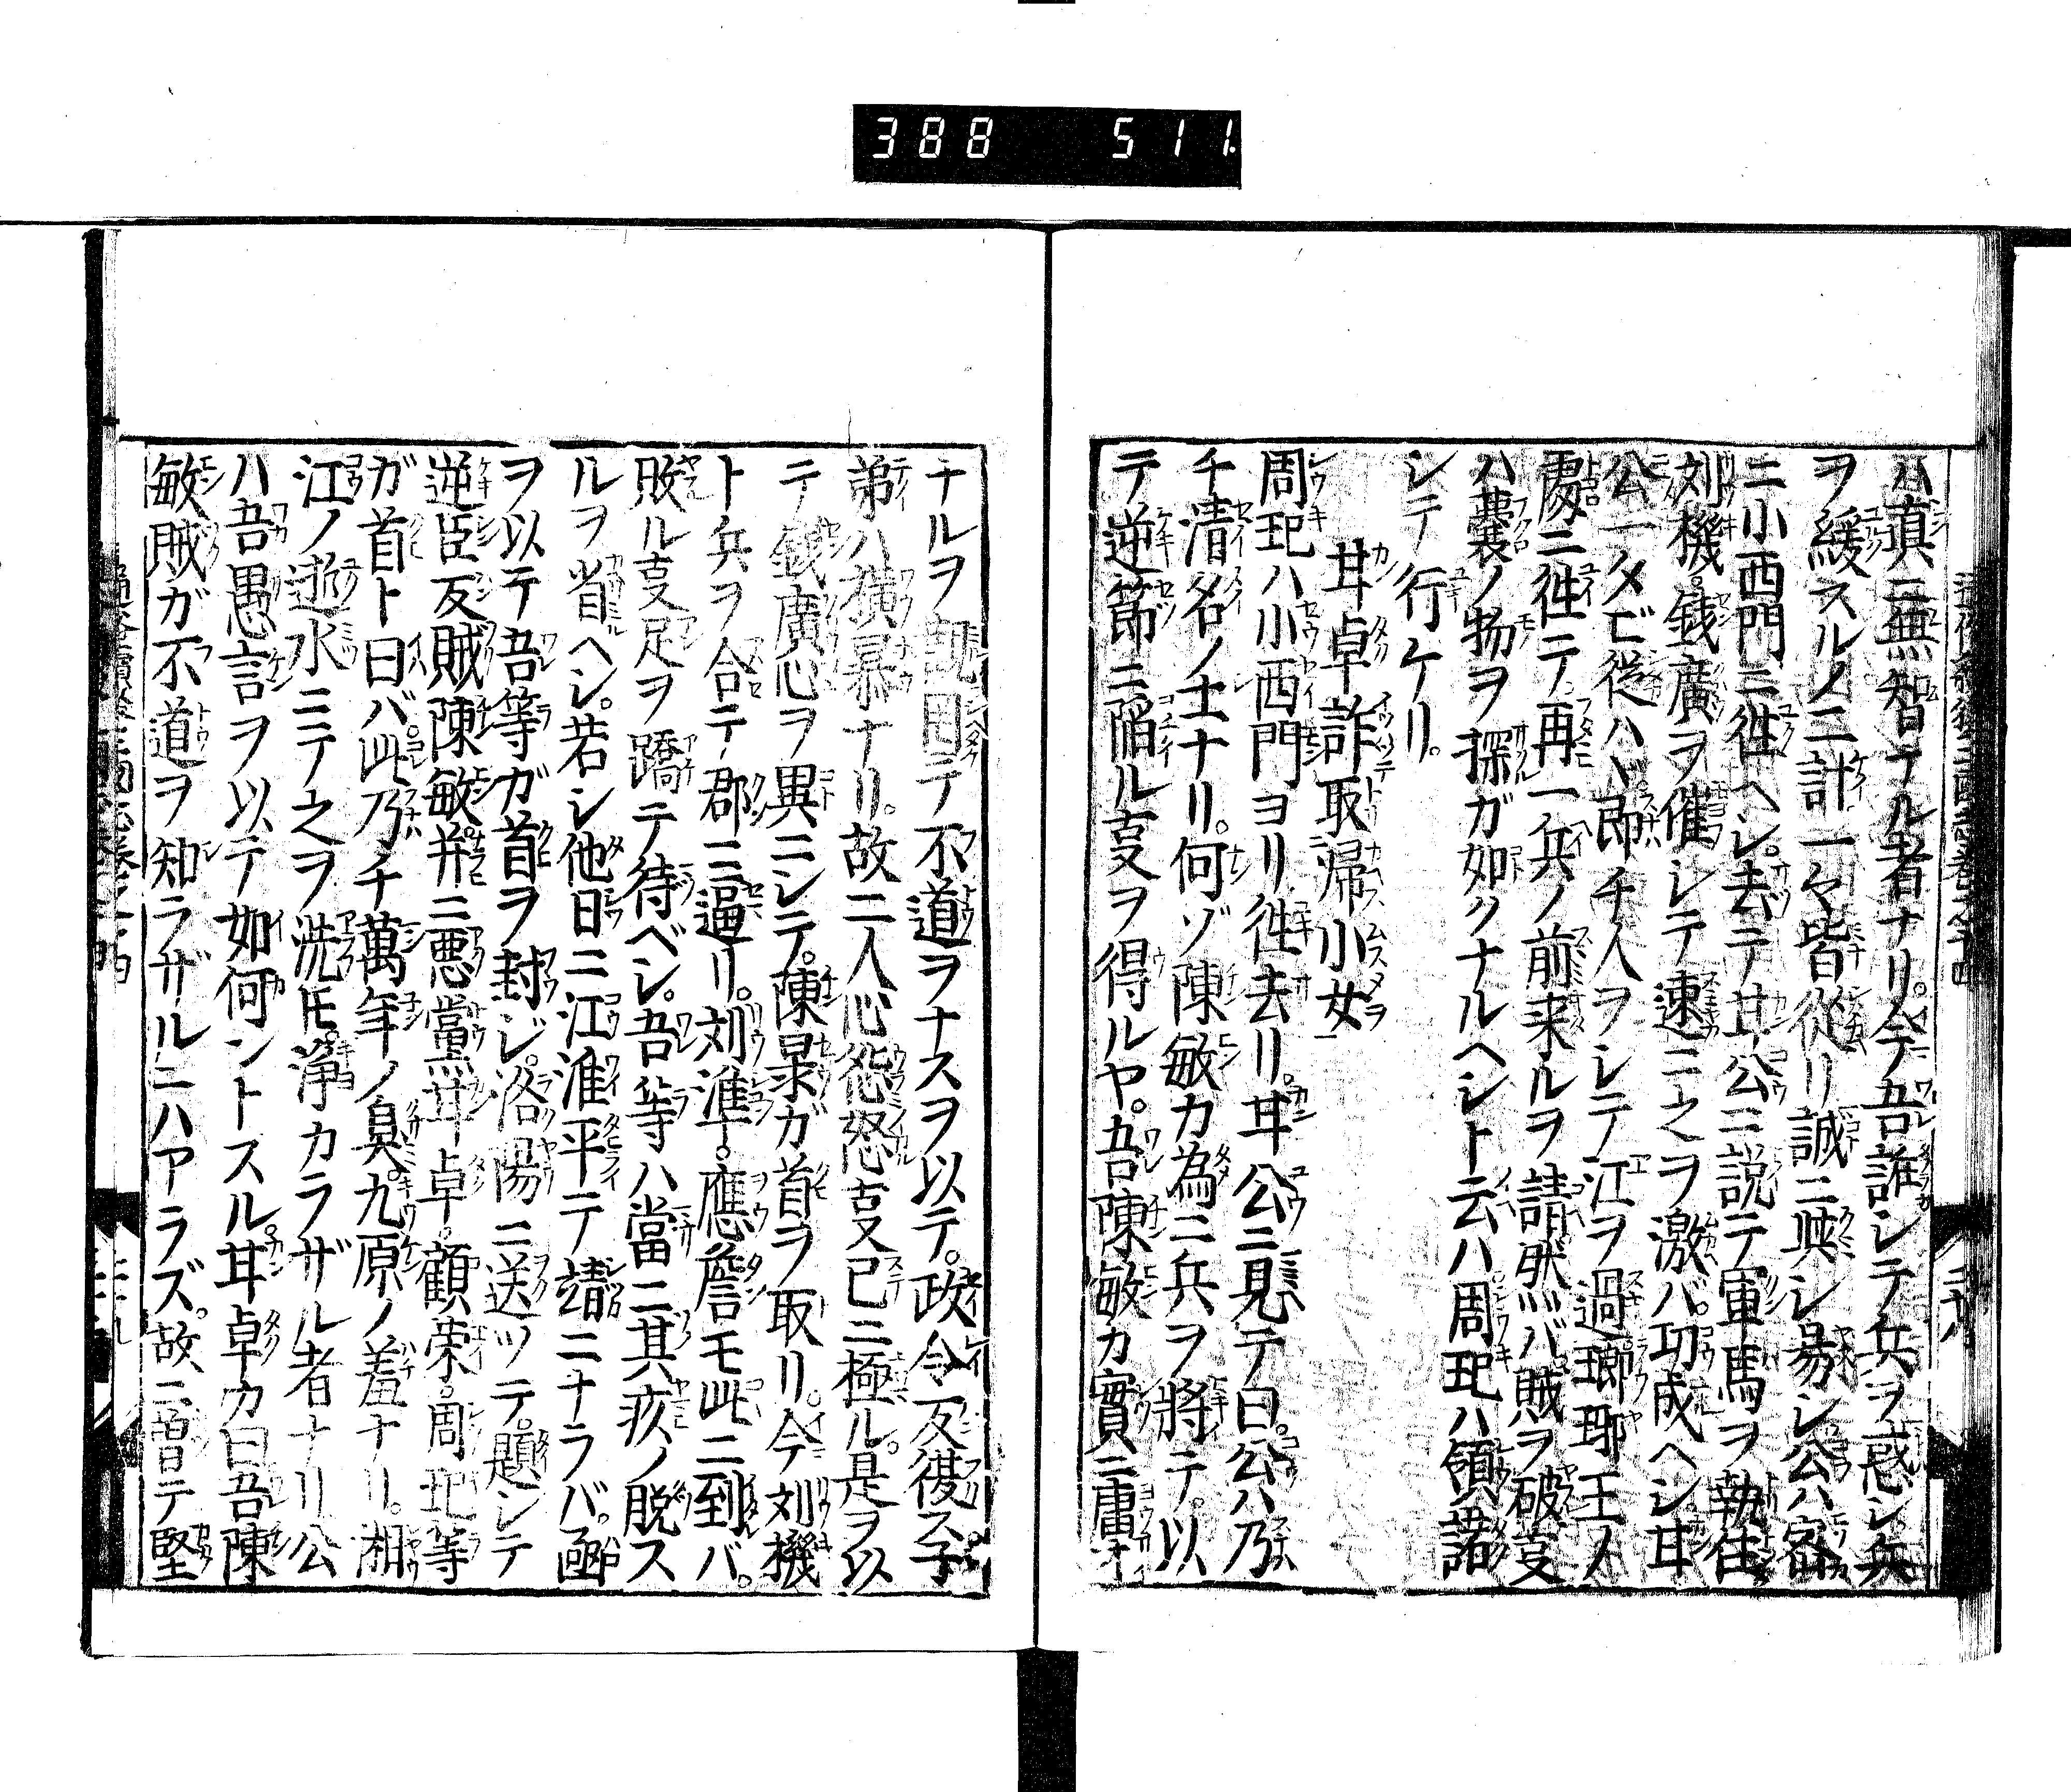 388 511.
ハ真ニ無智ナル者ナリ。今吾誰シテ兵ヲ惑シ兵
ヲ緩スルノ二計一々皆從リ誠ニ興シ易シ公ハ密
ニ小西門ニ徃ヘシ。去テ甘公ニ説テ軍馬ヲ執住
刘機。銭廣ヲ催シテ速ニ之ヲ激バ。功成ヘシ甘
公一タビ從ハヽ即チ人ヲシテ江ヲ過瑯耶王ノ
處ニ徃テ。再一兵ノ前来ルヲ請然バ賊ヲ破㕝
ハ嚢ノ物ヲ探ガ如クナルヘシト云ハ周玘ハ領諾
シテ行ケリ。
甘卓詐取帰小女
周玘ハ小西門ヨリ徃去リ。甘公ニ見テ曰。公ハ乃
チ清名ノ士ナリ。何ゾ陳敏カ為ニ兵ヲ將テ。以
テ逆節ニ陥ル㕝ヲ得ルヤ。吾陳敏カ實ニ庸才
ナルヲ テ不道ヲナスヲ以テ。政令反復ス子
弟ハ横暴ナリ。故二人心怨怒㕝已ニ極ル。是ヲ以
テ銭廣心ヲ異ニシテ。陳昶ガ首ヲ取リ。今刘機
ト兵ヲ合テ郡ニ逼リ。刘準。應詹モ此ニ到バ。
敗ル㕝足ヲ蹻テ待ベシ。吾等ハ當ニ其疾ノ脱ス
ルヲ省ヘシ。若シ他日ニ江淮平テ靖ニナラバ。函
ヲ以テ吾等ガ首ヲ封ジ。洛陽ニ送ツテ。題シテ
逆臣反賊陳敏。并ニ悪黨甘卓。顧榮。周玘等
ガ首ト曰バ。此乃チ萬年ノ臭。九原ノ羞ナリ。湘
江ノ逝水ニテ之ヲ洗𪜈。浄カラザル者ナリ公
ハ吾愚言ヲ以テ如何ントスル。甘卓カ曰吾陳
敏賊ガ不道ヲ知ラザルニハアラズ。故ニ曽テ堅